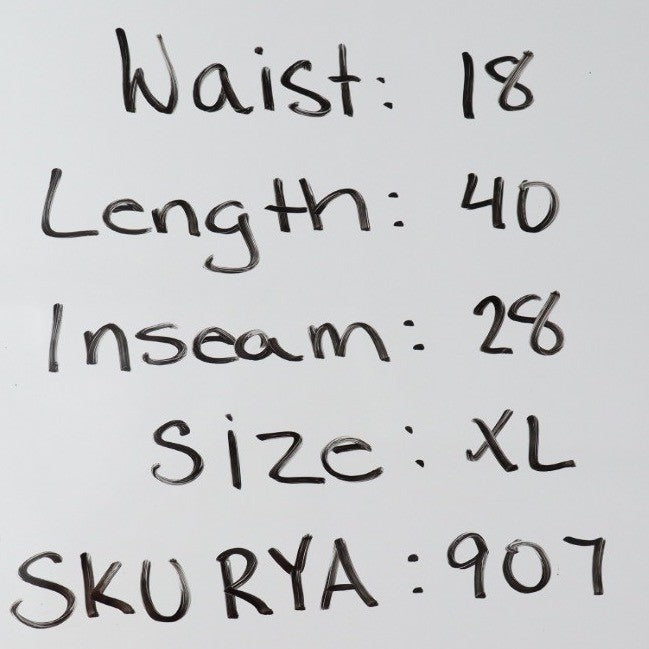 Waist: 18
Length: 40
Inseam: 28
Size: XL
SKU RYA: 907